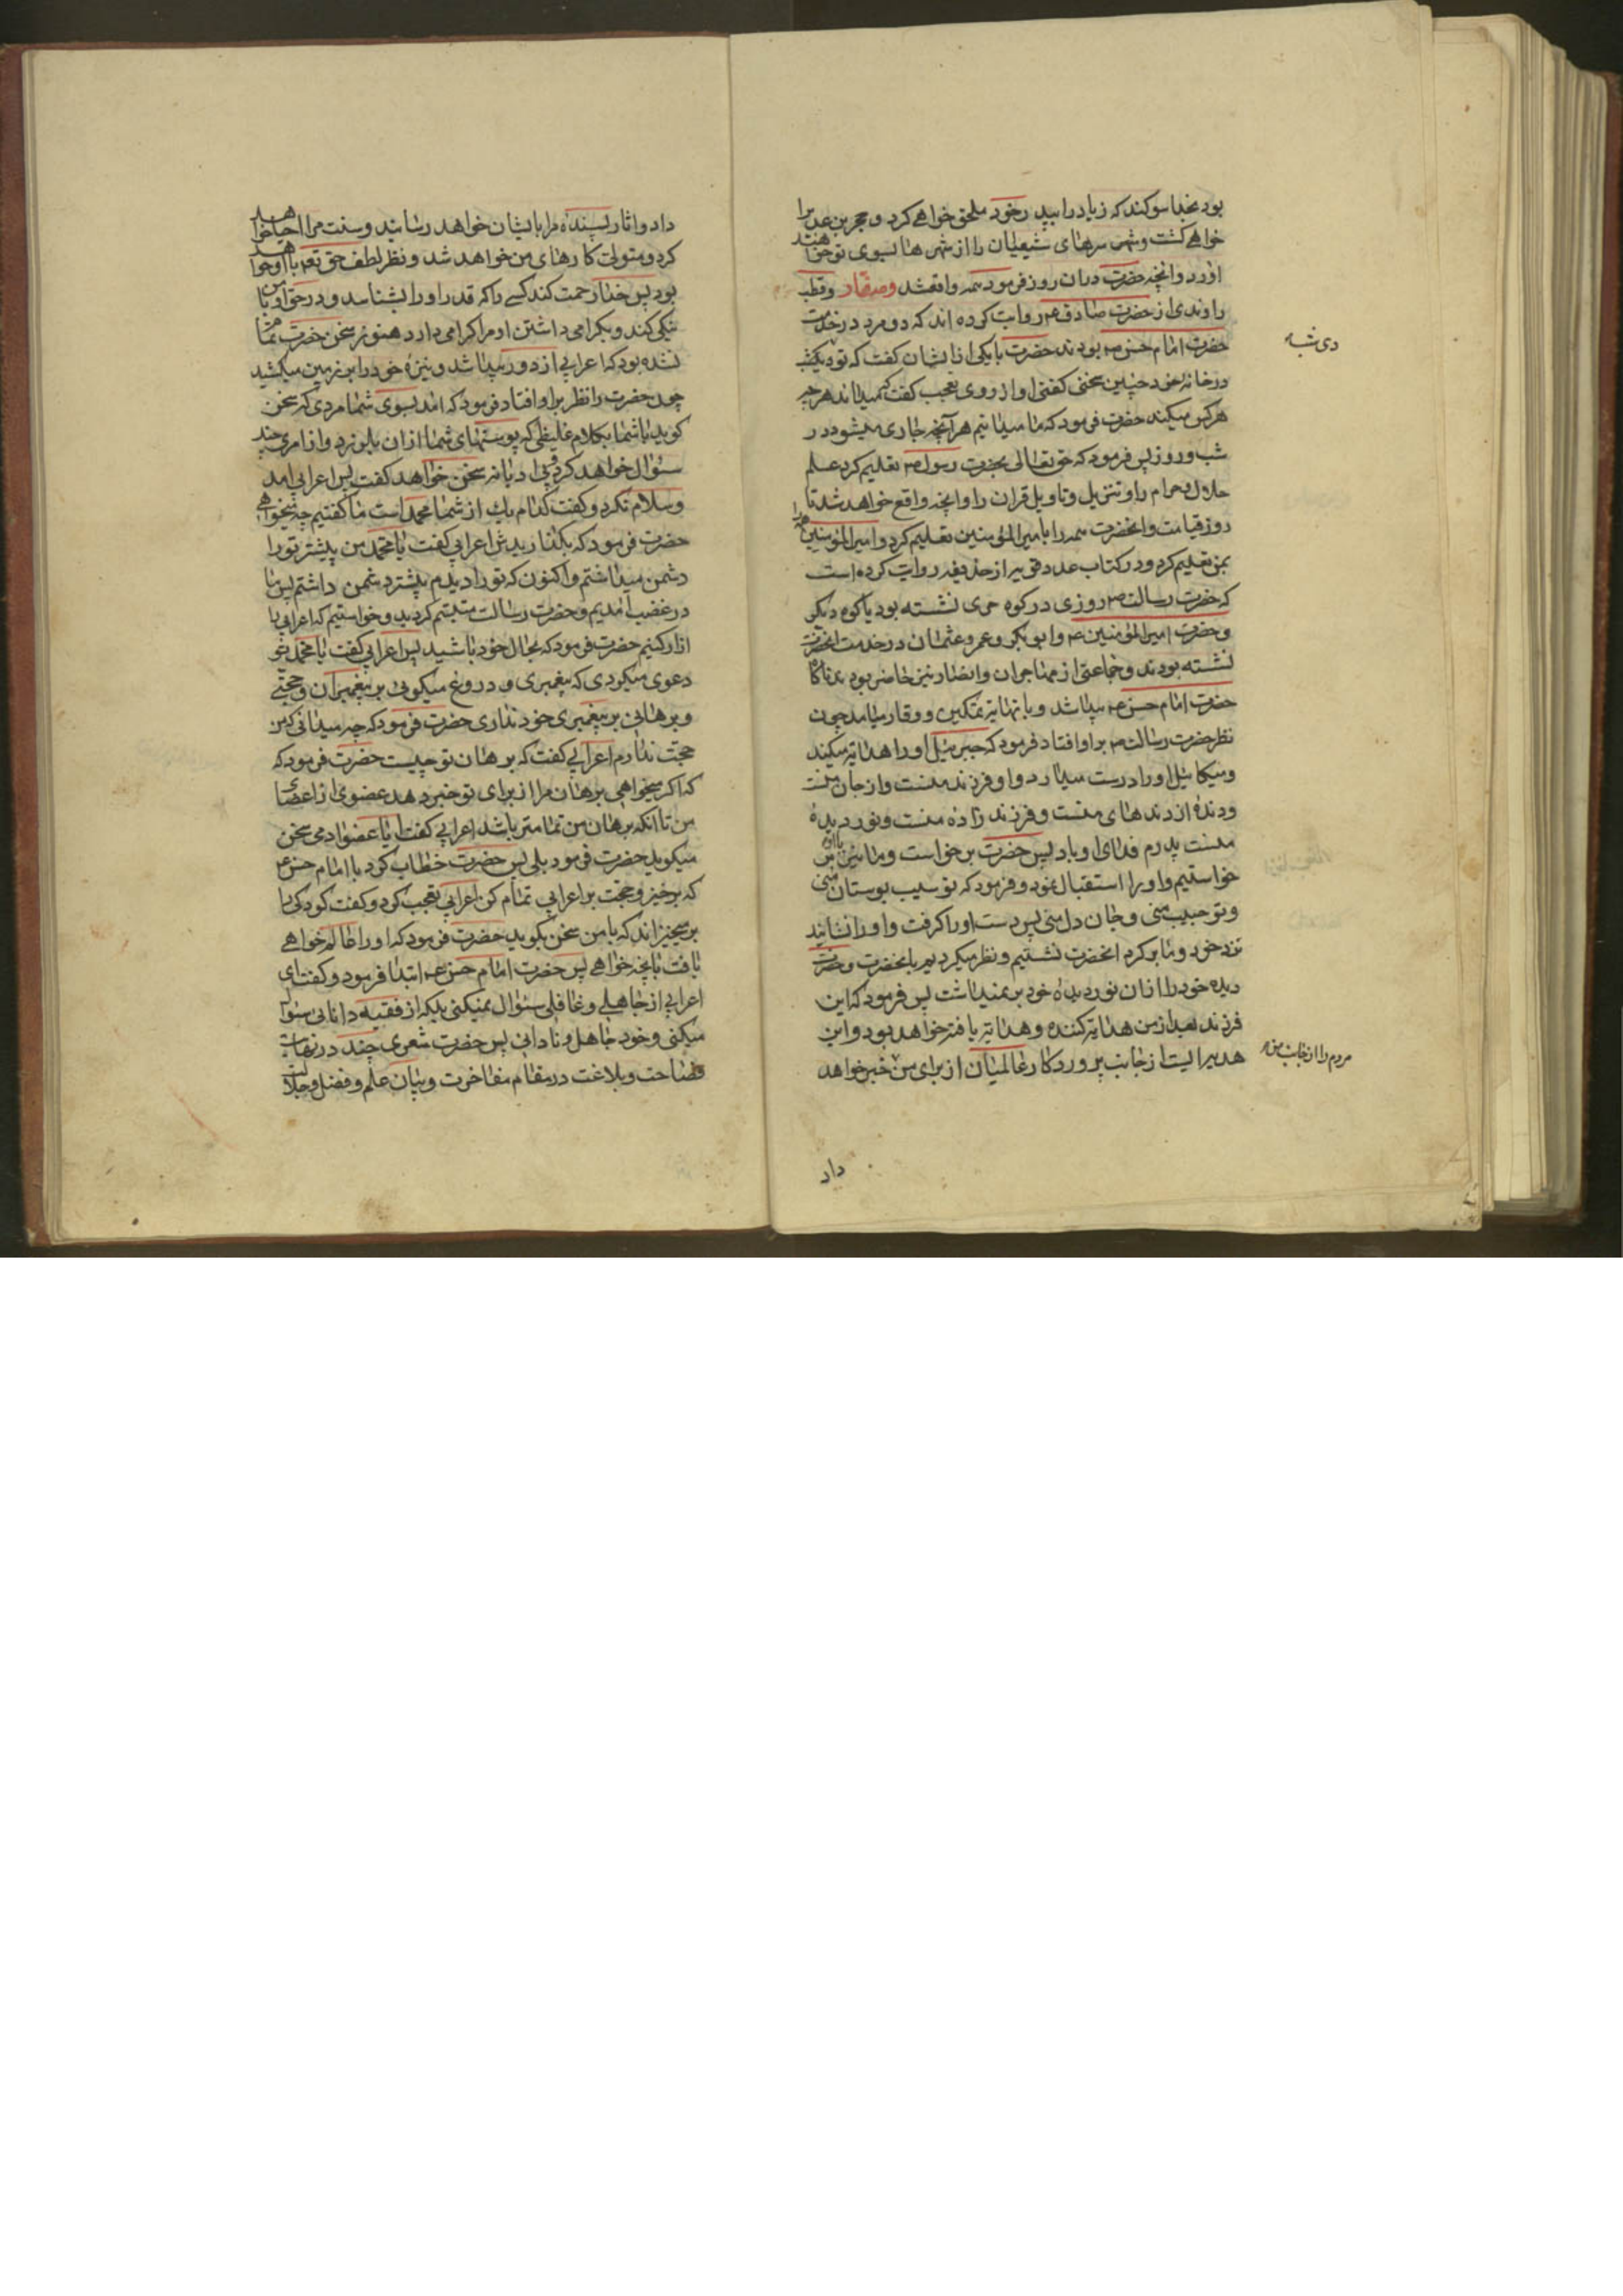 بود بخدا سوکند که زیاد را بپدر خود ملحق خواهی کرد و حجر بن عدی را
خواهی کشت و شهر سرهای شیعیان را از شهرها بسوی تو خواهند
اورد و انچه حضرت دران روز فرمود همه واقعشد وصفار و قطب
راوندی از حضرت صادق ۴ روایت کرده اند که دو مرد در خدمت
حضرت امام حسن ۴ بودند حضرت با یکی از ایشان کفت که تو دیکشب
دی شبه
در خانه خود چنین سخنی کفتی او از روی تعجب کفت که میداند هر چیز
هرکس میکند حضرت فرمود که ما میدانیم هر آنچه جاری میشود در
شب و روز پس فرمود که حق تعالی بحضرت رسول ۳ تعلیم کرد علم
حلال و حرام را و تنزیل و تاویل قران را و انچه واقع خواهد شد تا
روز قیامت و انحضرت همه را با میرالمؤمنین تعلیم کرد و امیرالمؤمنین همه را
بمن تعلیم کرد و در کتاب عدد قویه از حذیفه روایت کرده است
که حضرت رسالت ۳ روزی در کوه حری نشسته بود یا کوه دیکر
و حضرت امیرالمؤمنین ۴ و ابو بکر و عمر و عثمان در خدمت انحضرت
نشسته بودند و جماعتی از مهاجران و انصار نیز حاضر بودند ناکاه
حضرت امام حسن ۴ پیدا شد و با نهایة تمکین و وقار میامد چون
نظر حضرت رسالت ۳ بر او افتاد فرمود که جبرئیل او را هدایة میکند
و میکائیل او را درست میدارد و او فرزند منست و از جان منست
و دندهٔ از دندهای منست و فرزند زادهٔ منست و نور دیدهٔ
منست پدرم فدای او باد پس حضرت برخواست و ما نیز با او بر
خواستیم و او را استقبال نمود و فرمود که تو سیب بوستان منی
و تو حبیب منی و جان دل منی پس دست او را کرفت و او را نشانید
نزد خود و ما بر کرد انحضرت نشستیم و نظر میکردیم بانحضرت و حضرت
دیده خود را از ان نور دیدهٔ خود بر نمیداشت پس فرمود که این
فرزند بعد از من هدایة کننده و هدایة یافته خواهد بود و این
هدیه ایست از جانب پروردکار عالمیان از برای من خبر خواهد
مردم را از جانب من
داد
داد و اثار پسندهٔ مرا بایشان خواهد رسانید و سنت مرا احیا خواهد
کرد و متولی کارهای من خواهد شد و نظر لطف حق تعه با او خواهد
بود پس خدا رحمت کند کسی را که قدر او را بشناسد و در حق او با من
نیکی کند و بکرامی داشتن او مرا کرامی دارد هنوز سخن حضرت تمام
نشده بود که اعرابی از دور پیدا شد و نیزهٔ خود را بر زمین میکشید
چون حضرت را نظر بر او افتاد فرمود که امد بسوی شما مردی که سخن
کوید با شما بکلام غلیظی که پوستهای شما از ان بلرزد و از امری چند
سئوال خواهد کرد و بی ادبانه سخن خواهد کفت پس اعرابی امد
و سلام نکرد و کفت کدام یک از شما محمد است ما کفتیم چه میخواهی
حضرت فرمود که بکذاریدش اعرابی کفت یا محمد من پیشتر تو را
دشمن میداشتم و اکنون که تو را دیدم بیشتر دشمن داشتم پس ما
در غضب امدیم و حضرت رسالت متبسم کردید و خواستیم که اعرابی را
ازار کنیم حضرت فرمود که بحال خود باشید پس اعرابی کفت یا محمد تو
دعوی میکردی که پیغمبری و دروغ میکوئی بر پیغمبران و حجتی
و برهانی بر پیغمبری خود نداری حضرت فرمود که چه میدانی که من
حجت ندارم اعرابی کفت که برهان تو چیست حضرت فرمود که
که اکر میخواهی برهان مرا از برای تو خبر دهد عضوی از اعضای
من تا آنکه برهان من تمامتر باشد اعرابی کفت ایا عضو ادمی سخن
میکوید حضرت فرمود بلی پس حضرت خطاب کرد با امام حسن ۴
که برخیز و حجت بر اعرابی تمام کن اعرابی تعجب کرد و کفت کودکی را
بر میخیزاند که با من سخن بکوید حضرت فرمود که او را عالم خواهی
یافت بانچه خواهی پس حضرت امام حسن ۴ ابتدا فرمود و کفت ای
اعرابی از جاهلی و غافلی سئوال نمیکنی بلکه از فقیه دانایی سئوال
میکنی و خود جاهل و نادانی پس حضرت شعری چند در نهایت
فصاحت و بلاغت در مقام مفاخرت و بیان علم و فضل و جلالت